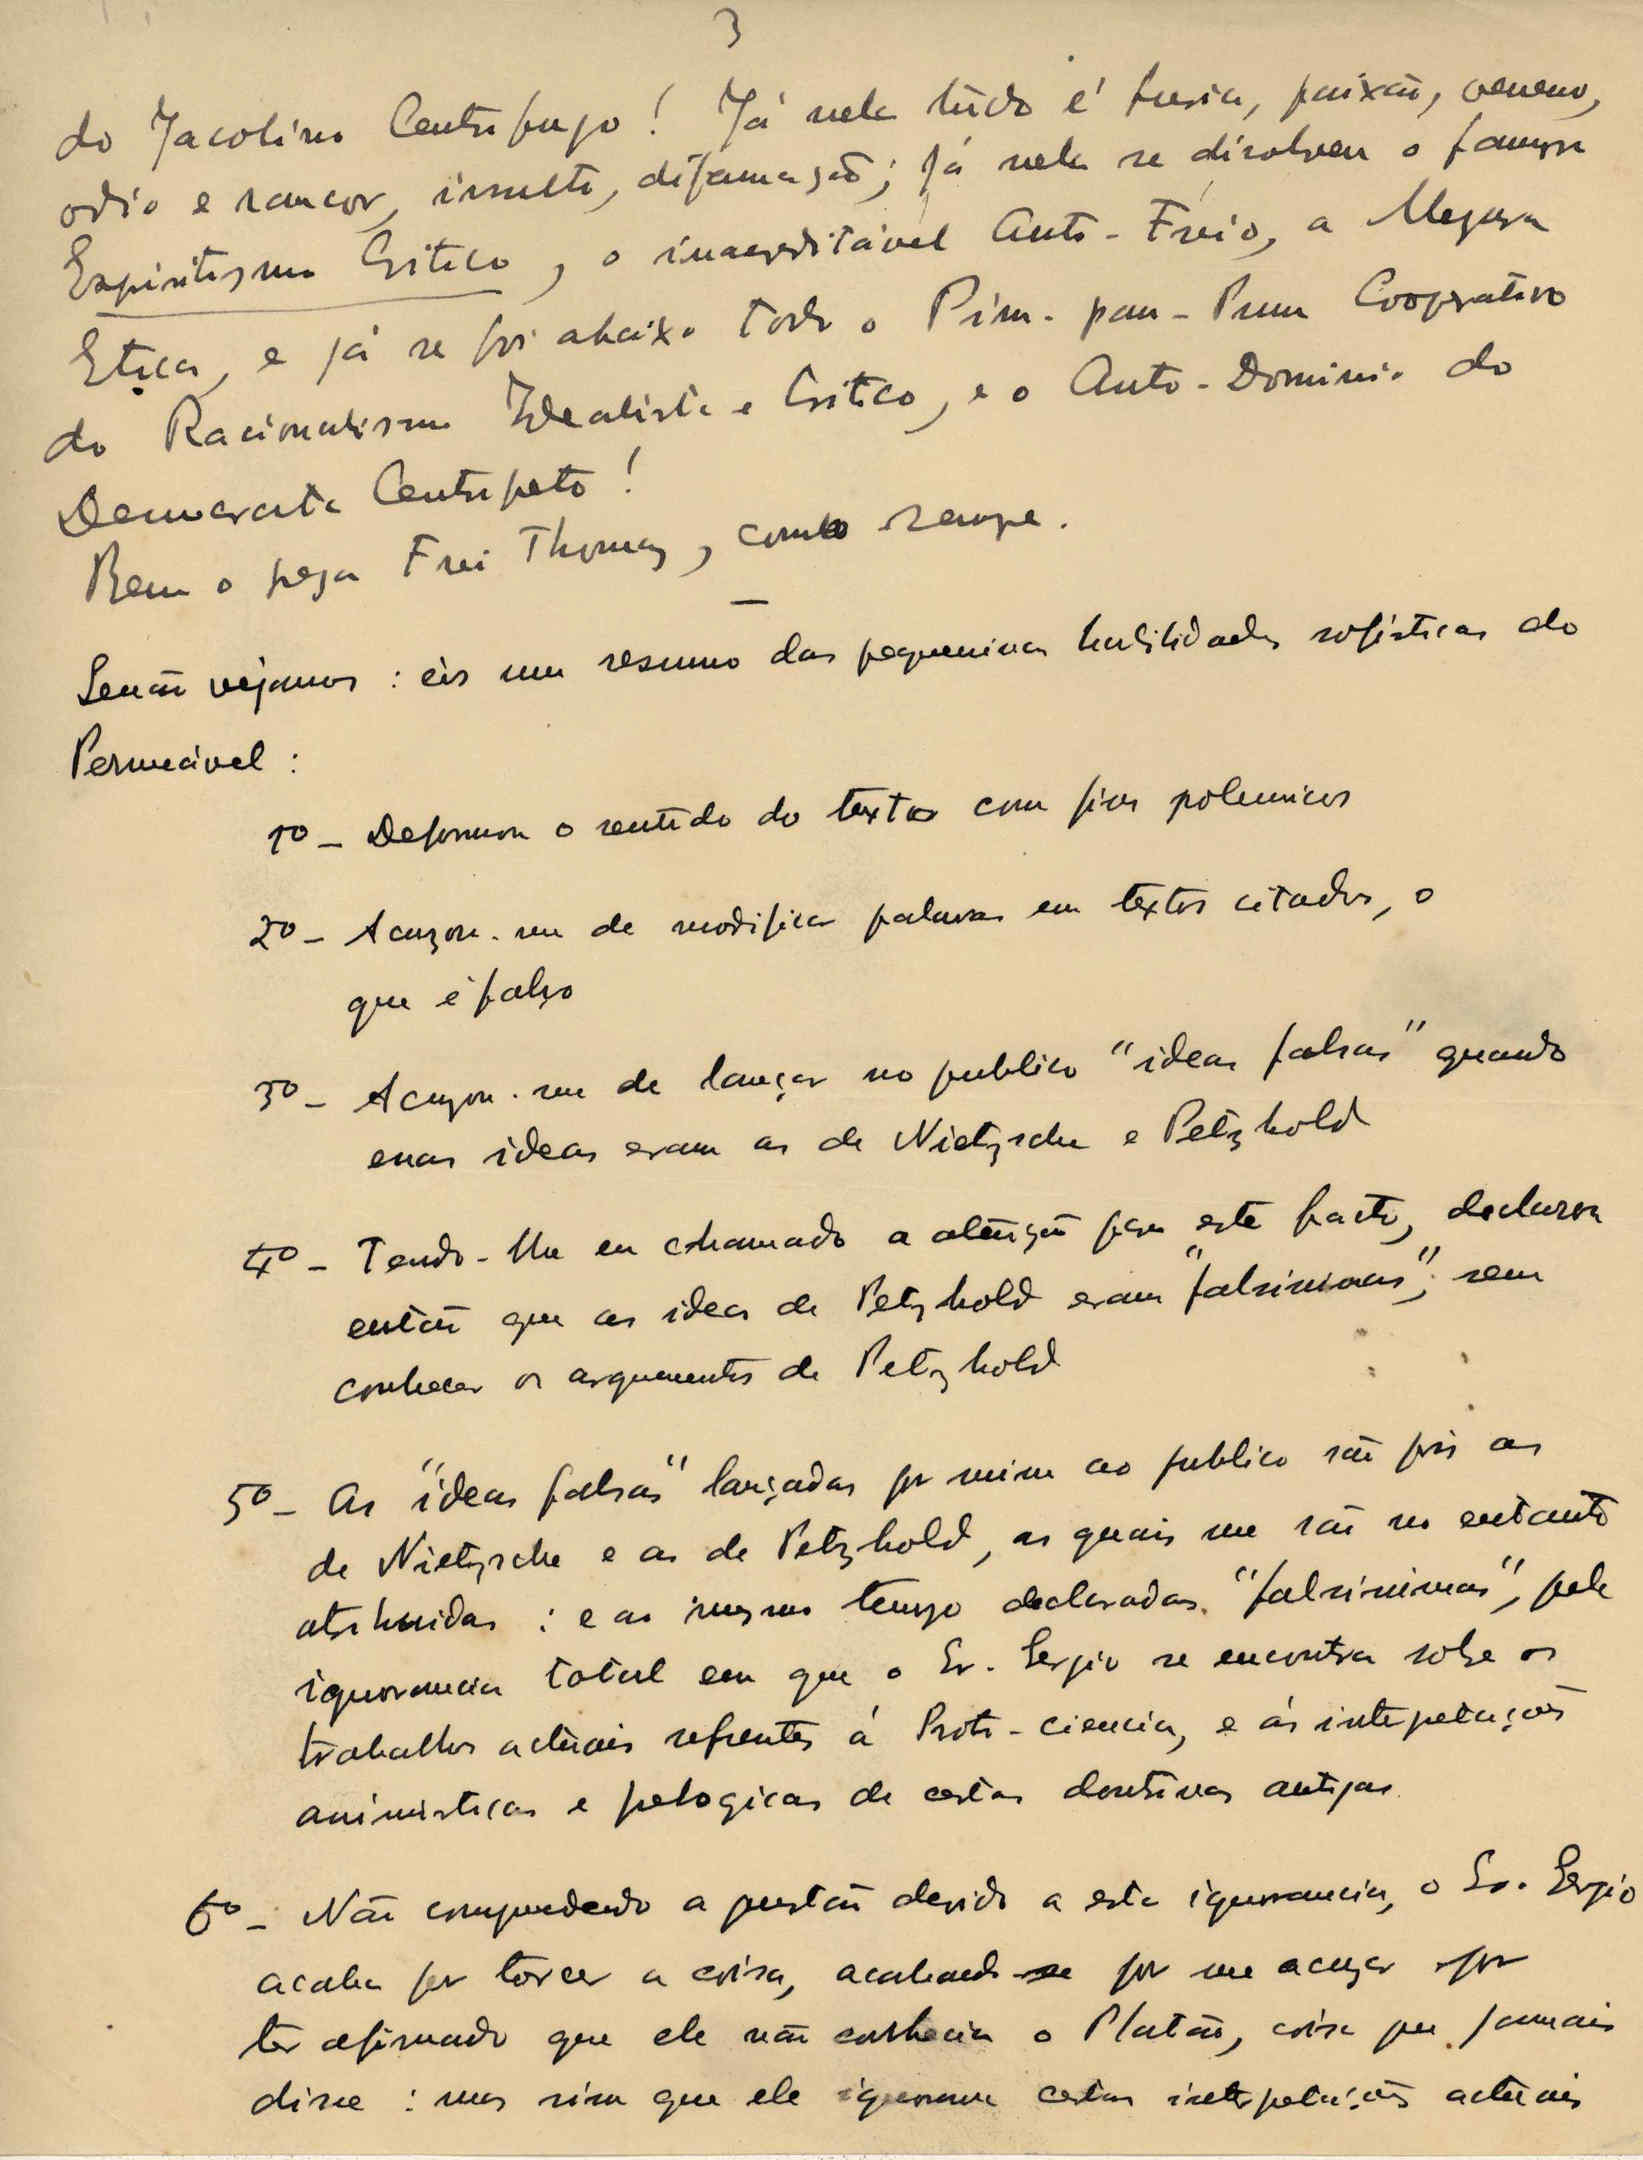 3
do Jacobino Centrifugo! Já nele tudo é furia, paixão, veneno,
odio e rancor, insulto, difamação; já nele se disolveu o famoso
Espiritismo Critico, o inacreditável Auto-Freio, a Megera
Etica, e já se foi abaixo todo o Pim-pam-Pum Cooperativo
do Racionalismo Idealista e Critico, e o Auto-Dominio do
Democrata Centripeto!
Bem o prega Frei Thomaz, como sempre.
Senão vejamos: eis um resumo das pequeninas habilidades sofisticas do
Permeável:
1º - Deformou o sentido do texto com fins polemicos
2º - Acuzou-me de modificar palavras em textos citados, o
que é falso
3º - Acuzou-me de lançar no publico "ideas falsas" quando
essas ideas eram as de Nietzsche e Petzhold
4º - Tendo-lhe eu chamado a atenção para este facto, declarou
então que as ideas de Petzhold eram "falsissimas", sem
conhecer os argumentos de Petzhold
5º - As "ideas falsas" lançadas por mim ao publico são pois as
de Nietzsche e as de Petzhold, as quais me são no entanto
atribuidas: e ao mesmo tempo declaradas "falsissimas", pela
ignorancia total em que o Sr. Sergio se encontra sobre os
trabalhos actuais referentes á Proto-ciencia, e ás interpetações
animisticas e de certas doutrinas antigas.
6º - Não compreendendo a questão devido a esta ignorancia, o Sr. Sergio
acaba por torcer a coisa, acabando por me acuzar por
ter afirmado que ele não conhecia o Platão, coisa que jamais
disse: mas sim que ele ignorava certas interpetações actuais